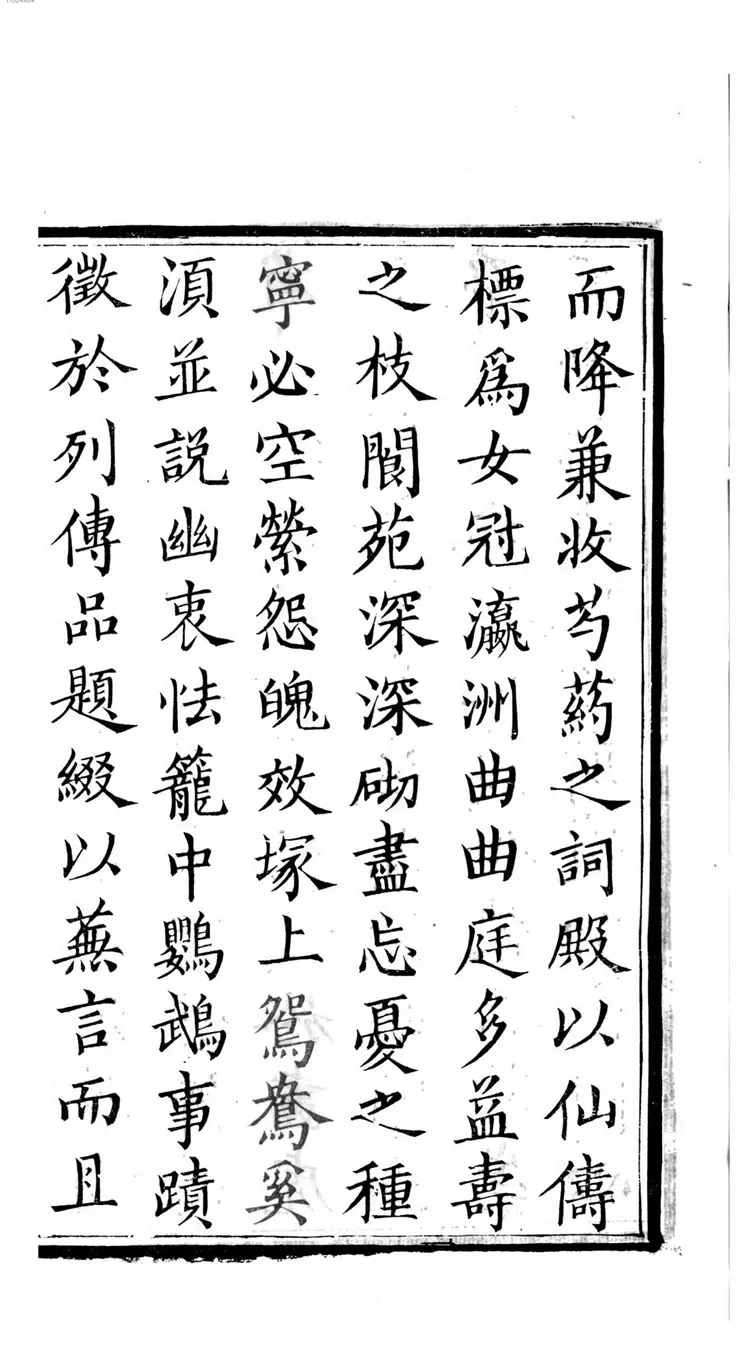 而降兼收芍葯之詞殿以仙儔
標爲女冠瀛洲曲曲庭多益壽
之枝閬苑深深砌盡忘憂之種
寧必空縈怨魄效塚上鴛鴦奚
湏並説幽衷怯籠中鸚鵡事蹟
徵於列傳品題綴以蕪言而且